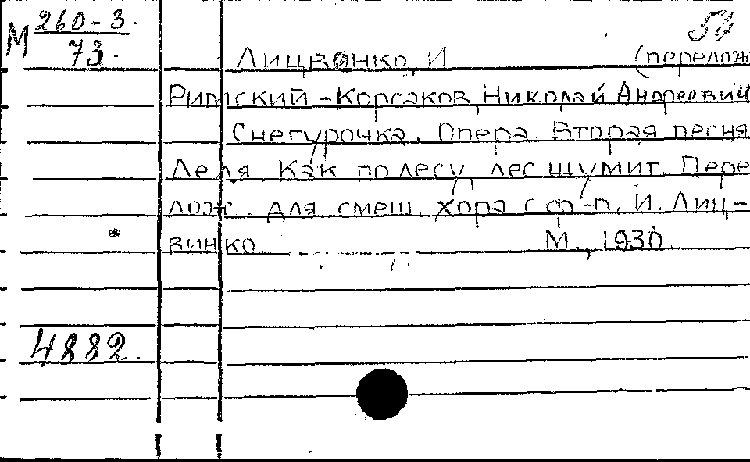 М 260-3.
73.
Лицвенко, И. (перелож
Римский-Корсаков, Николай Андреевич
Снегурочка. Опера. Вторая песня
Леля. Как по лесу лес шумит. Пере
лож. для смеш. хора с ф-п. И. Лиц-
винко М., 1930.
4882.